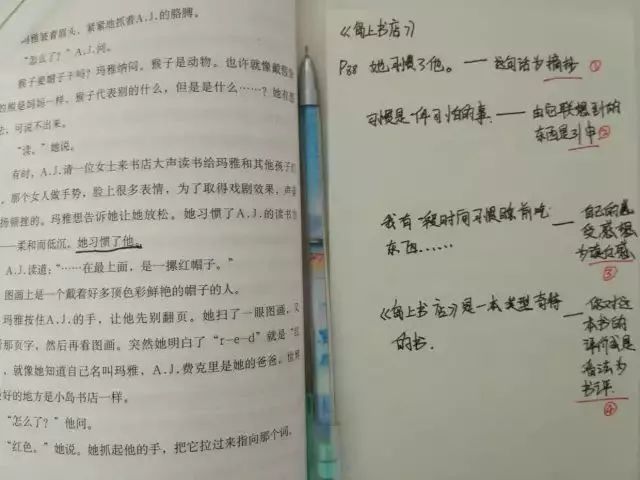 玛雅皱着眉头，紧紧地抓着A.J.的胳膊。
“怎么了？”A.J.问。
猴子要帽子干吗？玛雅纳闷。猴子是动物。也许就像戴
的熊是妈妈一样，猴子代表别的什么，但是是什么……？她有
，可说不出来。
“读。”她说。
有时，A.J.请一位女士来书店大声读书给玛雅和其他孩子
，那个女人做手势，脸上很多表情，为了取得戏剧效果，声
扬顿挫的。玛雅想告诉她让她放松。她习惯了A.J.的读书
——柔和而低沉。她习惯了他。
A.J.读道：“……在最上面，是一摞红帽子。”
图画上是一个戴着好多顶色彩鲜艳的帽子的人。
玛雅按住A.J.的手，让他先别翻页。她扫了一眼图画，又
那页字，然后再看图画。突然她明白了“r-e-d”就是“红
，就像她知道自己名叫玛雅，A.J.费克里是她的爸爸，世界
好的地方是小岛书店一样。
“怎么了？”他问。
“红色。”她说。她抓起他的手，把它拉过来指向那个词，
《岛上书店》
P88 她习惯了他。——这句话为摘抄 ①
习惯是一件可怕的事。——由它联想到的
东西是引申②
我有一段时间习惯睡前吃
东西……
——自己的感
受感想
为读后感
③
《岛上书店》是一本类型奇特
的书。
——你对这
本书的
评价或是
看法为
书评.
④